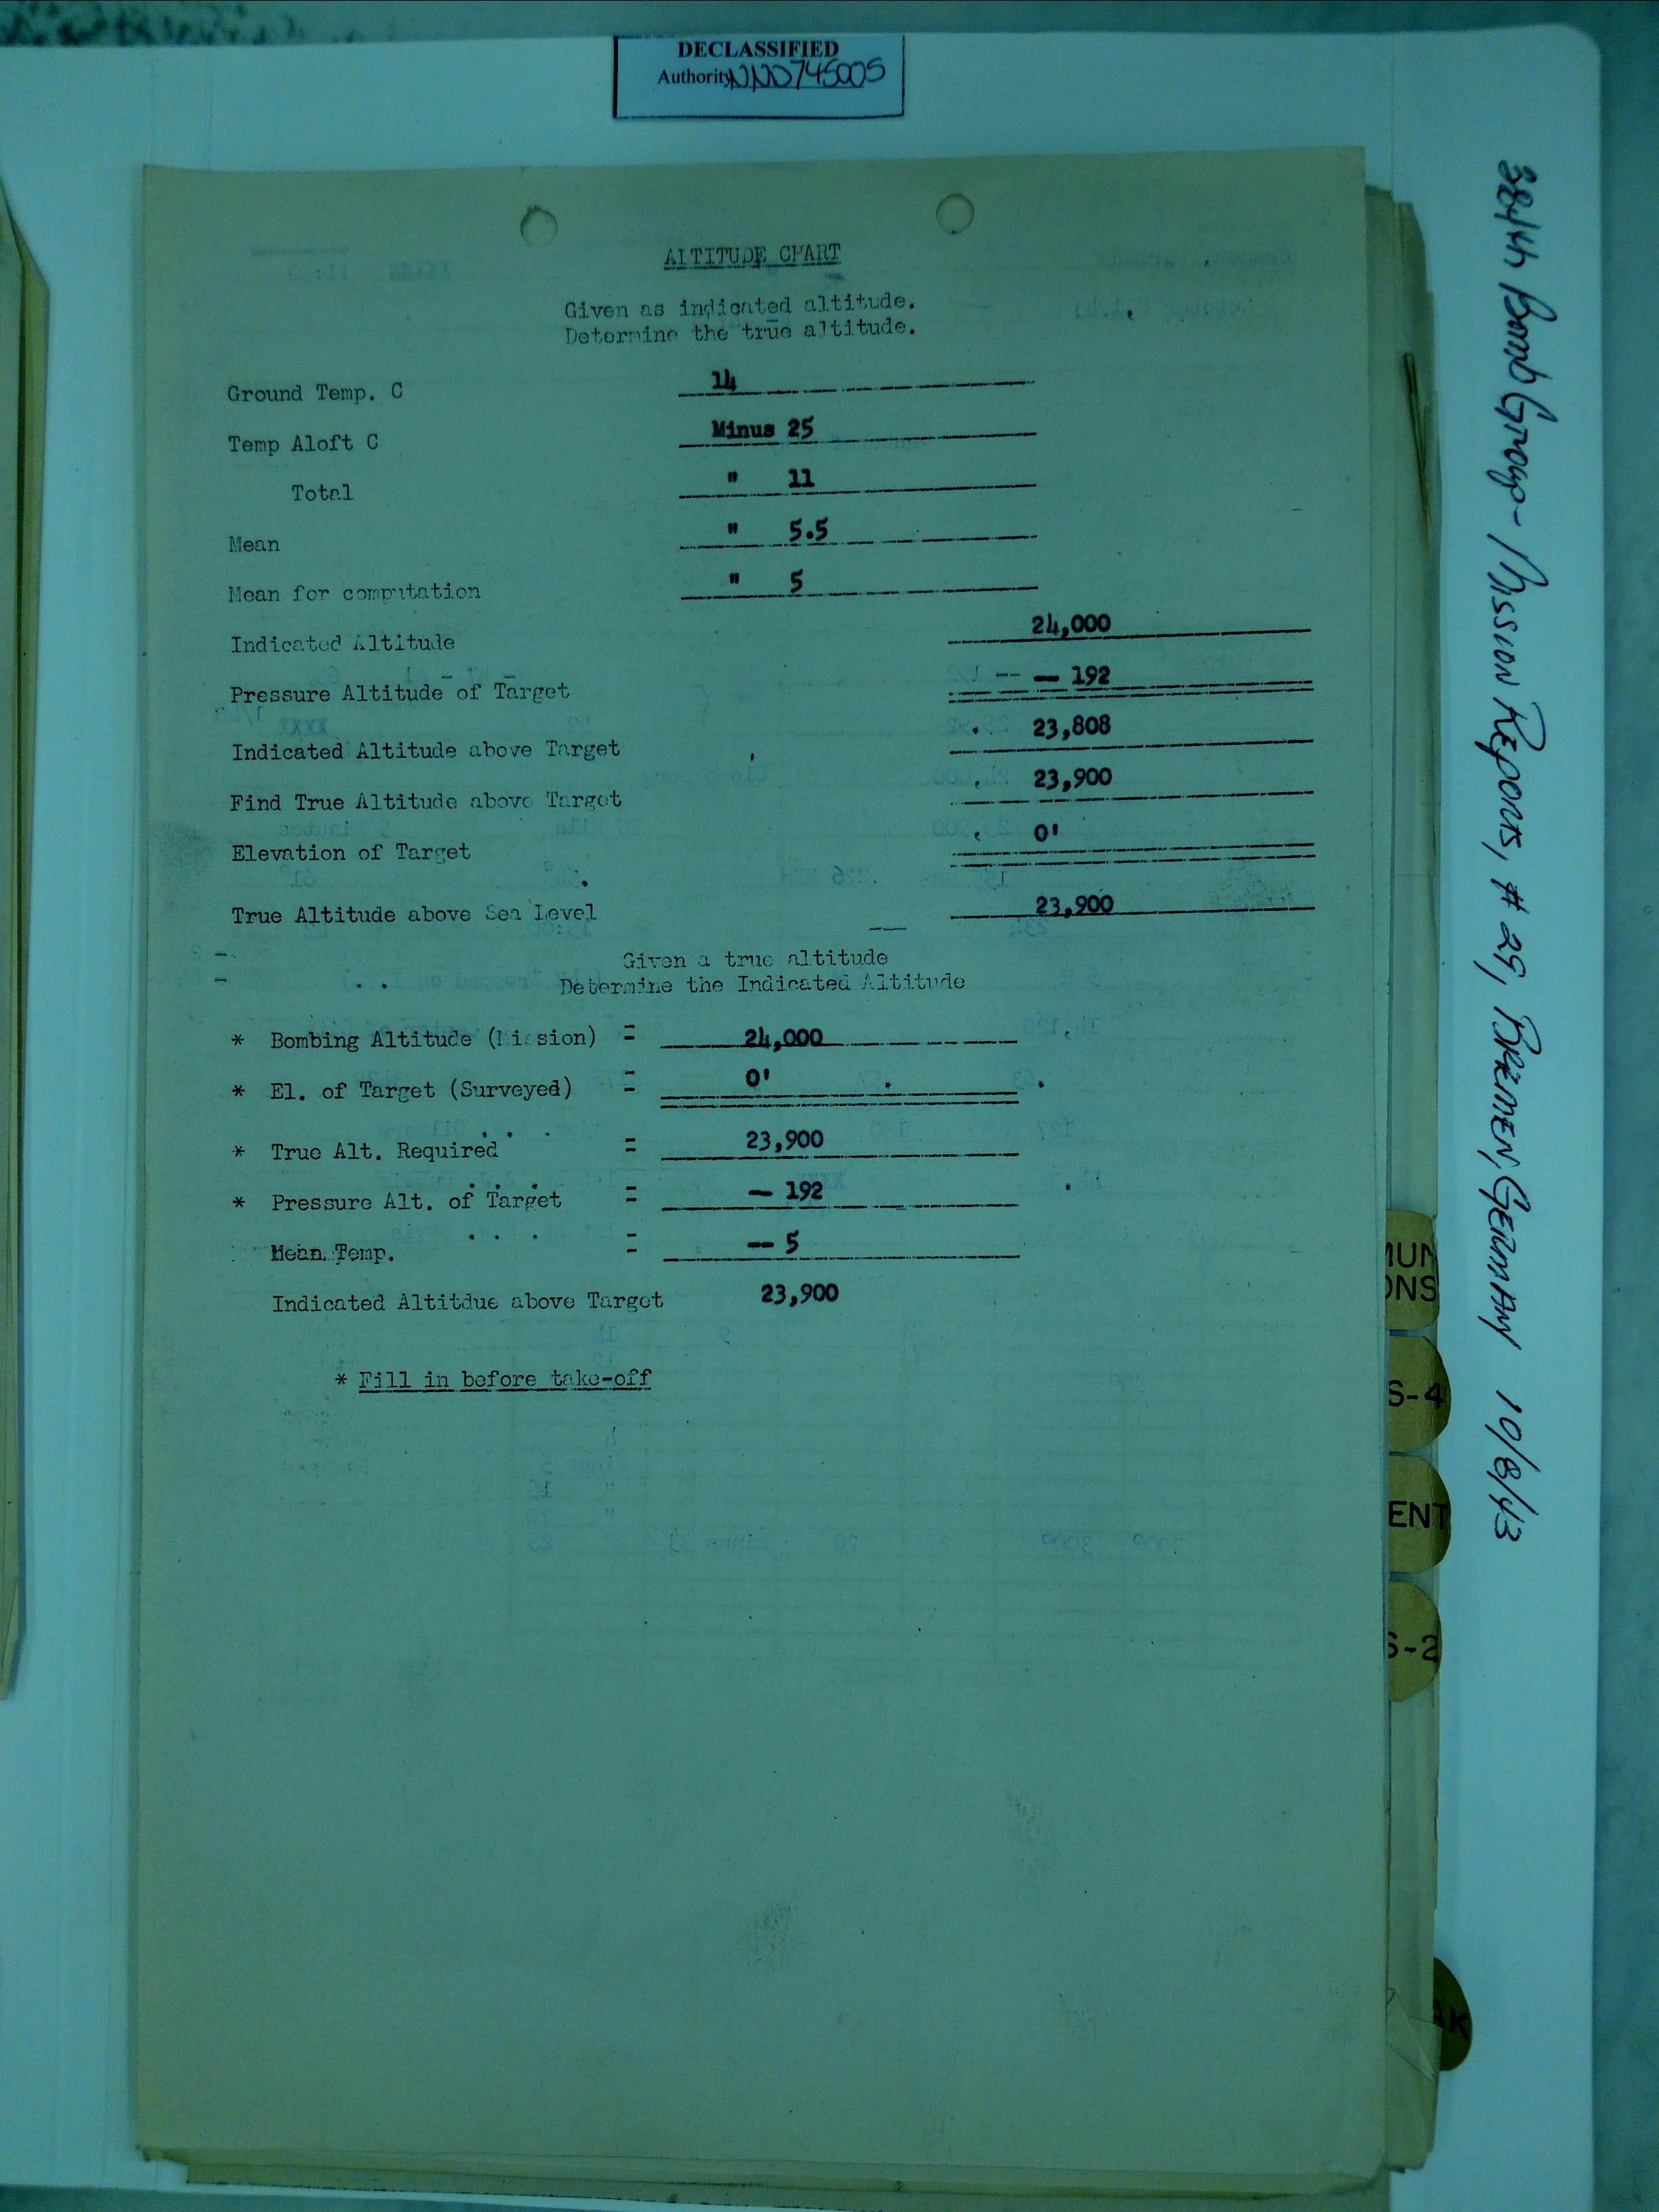 DECLASSIFIED
Authority NND745005
ALTITUDE CHART
Given as indicated altitude.
Determine the true altitude.
Ground Temp. C 14
Temp Aloft C Minus 25
Total " 11
Mean " 5.5
Mean for computation " 5
Indicated Altitude 24,000
Pressure Altitude of Target - 192
Indicated Altitude above Target 23,808
Find True Altitude above Target 23,900
Elevation of Target 0'
True Altitude above Sea Level 23,900
Given a true altitude
Determine the Indicated Altitude
* Bombing Altitude (Mission) = 24,000
* El. of Target (Surveyed) = 0'
* True Alt. Required = 23,900
* Pressure Alt. of Target = - 192
Mean Temp. = -- 5
Indicated Altitdue above Target 23,900
* Fill in before take-off
384th Bomb Group - Mission Reports, # 29, BREMEN, GERMANY 10/8/43
MUN
ONS
S-4
ENT
S-2
AK